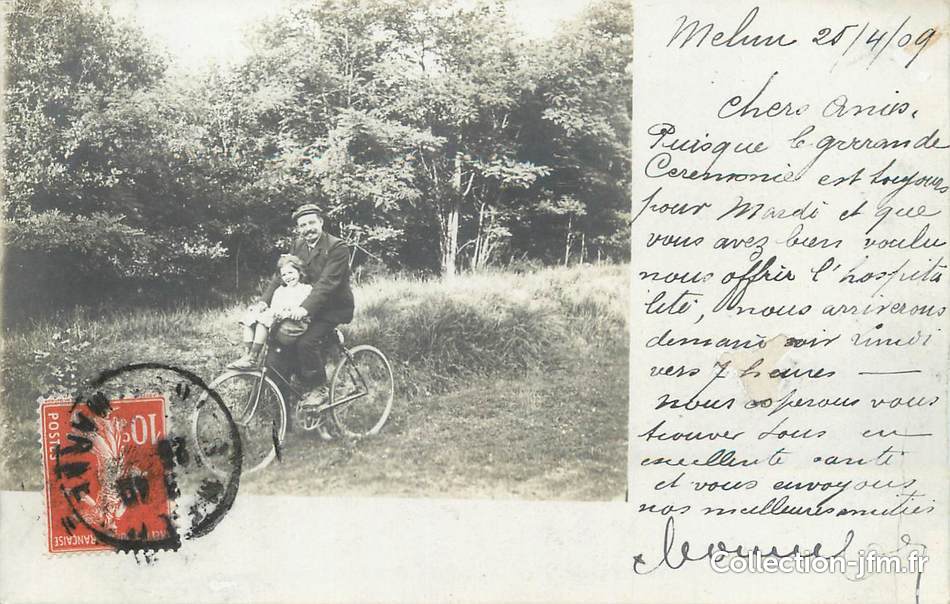 Melun 25/4/09
Chers Amis,
Puisque la grrrande
Ceremonie est toujours
pour Mardi et que
vous avez bien voulu
nous offrir l'hospita
lité, nous arriverons
demain soir lundi
vers 7 heures —
nous esperons vous
trouver tous en
excellente santé
et vous envoyons
nos meilleures amitiés
10c
POSTES
Collection-jfm.fr